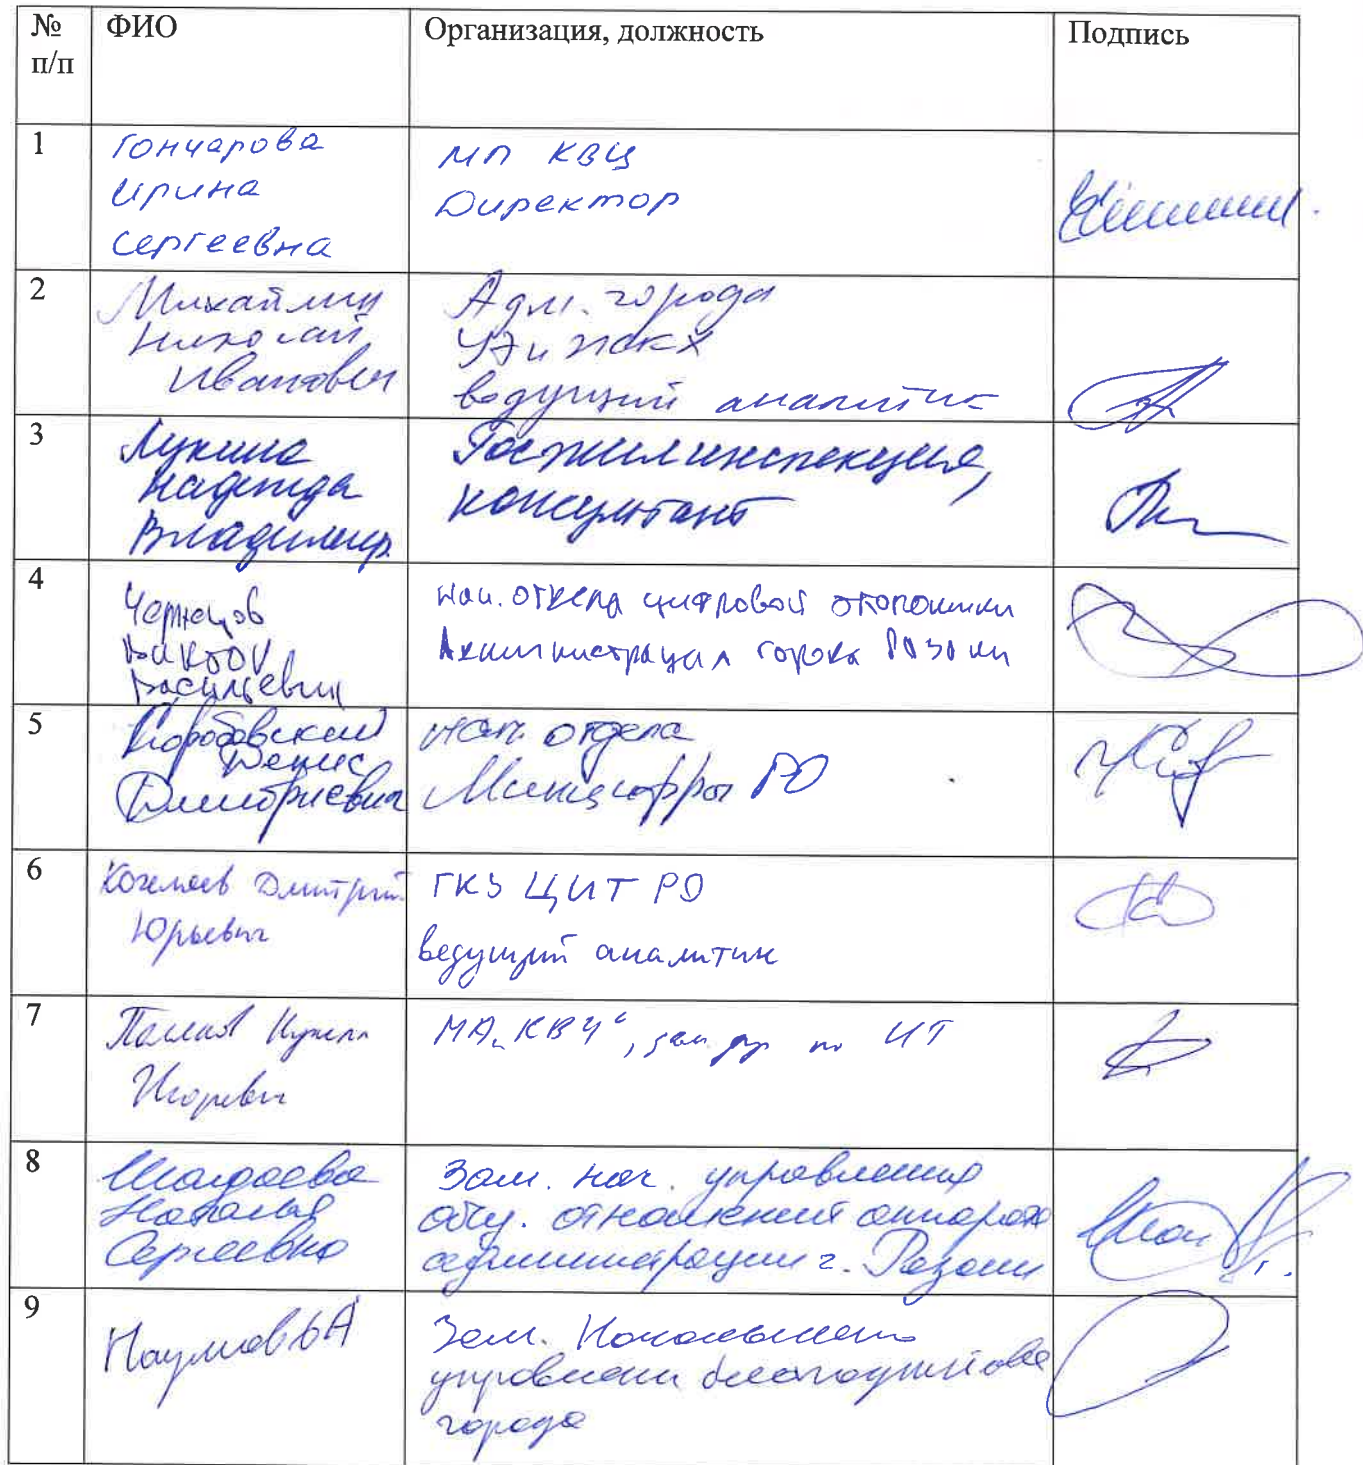 № п/п
ФИО
Организация, должность
Подпись
1
Гончарова
Ирина
Сергеевна
МП КВЦ
Директор
2
Михайлин
Николай
Иванович
Адм. города
УЭи ЖКХ
ведущий аналитик
3
Лукина
Надежда
Владимир.
Госжилинспекция,
консультант
4
Чернецов
Виктор
Васильевич
Нач. отдела цифровой экономики
Администрация города Рязани
5
Коробовский
Денис
Дмитриевич
нач. отдела
Минцифры РО
6
Дмитрий
Юрьевич
ГКУ ЦИТ РО
ведущий аналитик
7
Кирилл
Игоревич
"КВЦ", зам по ИТ
8
Наталья
Сергеевна
Зам. нач. управления
общ. отношений аппарата
администрации г. Рязани
9
Наумов
Зам. Начальника
управлени благоустройства
города